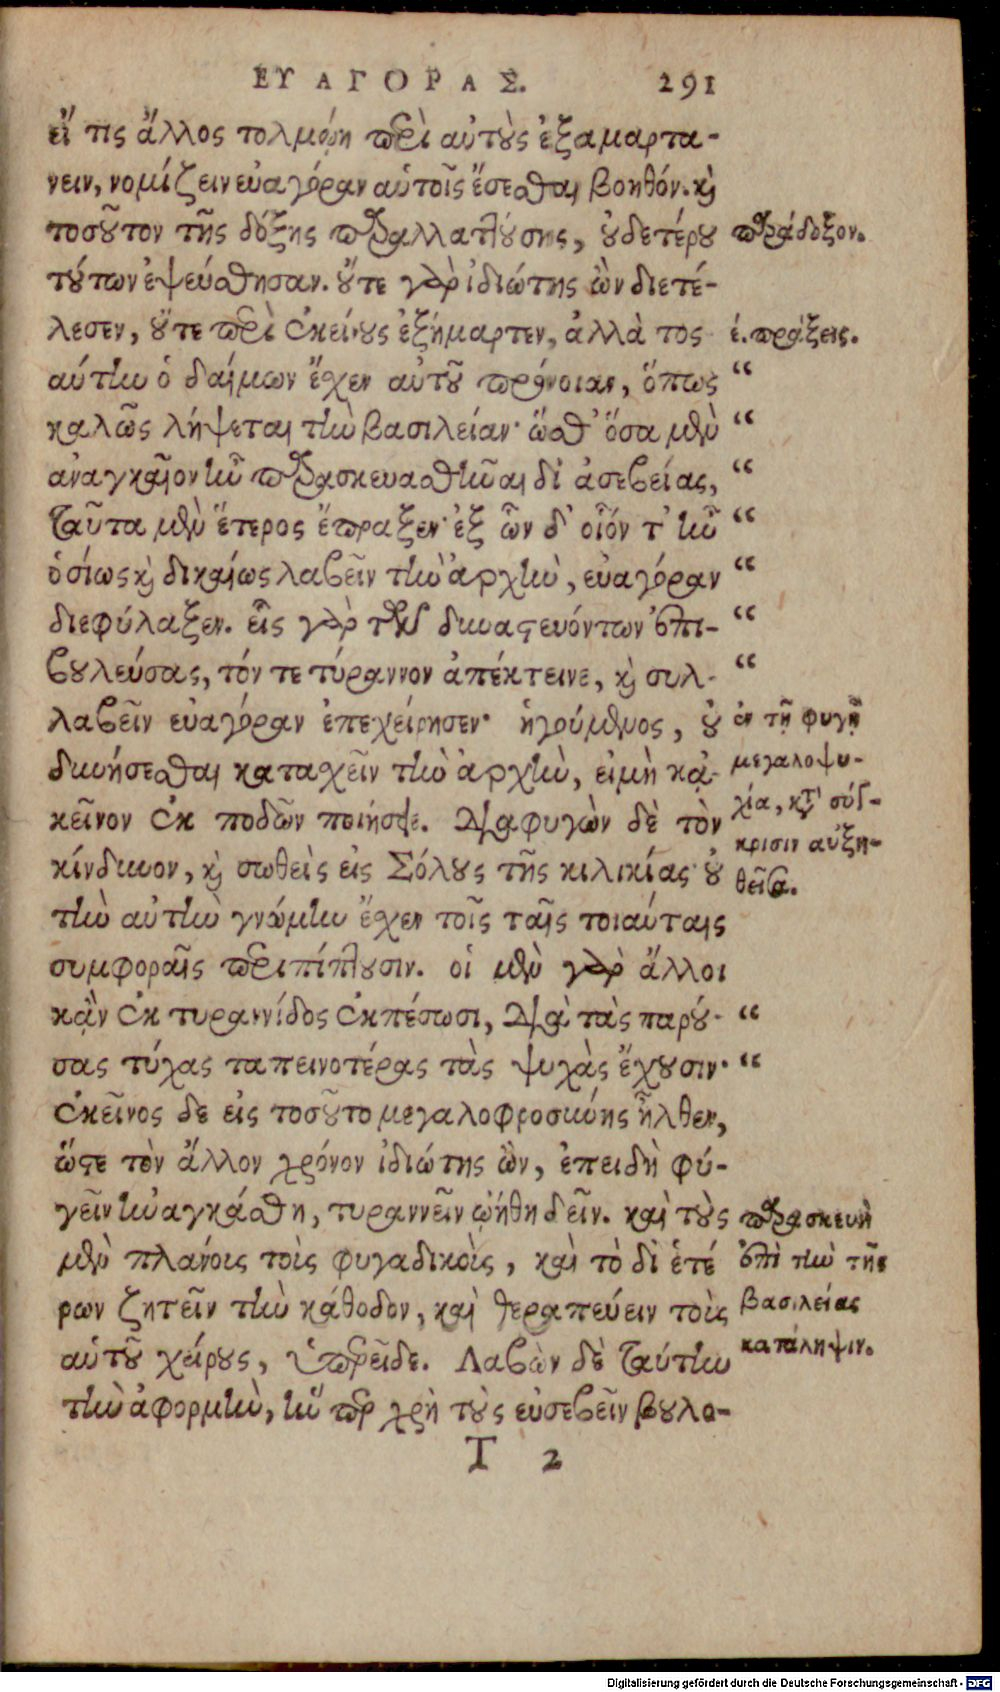 ΕΥΑΓΟΡΑΣ. 291
εἴ τις ἄλλος τολμῴη περὶ αὐτοὺς ἐξαμαρτα-
νειν, νομίζειν εὐαγόραν αὑτοῖς ἔσεσθαι βοηθόν. καὶ
τοσοῦτον τῆς δόξης παραλλαττούσης, οὐδετέρου
παράδοξον.
τούτων ἐψεύσθησαν. οὔτε γὰρ ἰδιώτης ὢν διετέ-
λεσεν, οὔτε περὶ ἐκείνους ἐξήμαρτεν, ἀλλὰ τος
έ. πράξεις.
αύτην ὁ δαίμων ἔχεν αὐτοῦ πρόνοιαν, ὅπως “
καλῶς λήψεται τὴν βασιλείαν· ὥσθ' ὅσα μὲν “
ἀναγκαῖον ἦν παρασκευασθῆναι δι' ἀσεβείας, “
ταῦτα μὲν ἕτερος ἔπραξεν· ἐξ ὧν δ' οἷόν τ' ἦν “
ὁσίως καὶ δικαίως λαβεῖν τὴν ἀρχὴν, εὐαγόραν “
διεφύλαξεν. εἷς γὰρ τῶν δυναστευόντων ἐπι- “
βουλεύσας, τόν τε τύραννον ἀπέκτεινε, καὶ συλ- “
λαβεῖν εὐαγόραν ἐπεχείρησεν· ἡγούμενος, οὐ
ἐν τῇ φυγῇ
δυνήσεσθαι κατασχεῖν τὴν ἀρχὴν, εἰ μὴ κἀ-
μεγαλοψυ-
κεῖνον ἐκ ποδῶν ποιήσαιτο. διαφυγὼν δὲ τὸν
χία, κατὰ σύγ-
κρισιν αὐξη-
κίνδυνον, καὶ σωθεὶς εἰς Σόλους τῆς κιλικίας· οὐ
θεῖσα.
τὴν αὐτὴν γνώμην ἔχεν τοῖς ταῖς τοιαύταις
συμφοραῖς περιπίπτουσιν. οἱ μὲν γὰρ ἄλλοι
κἂν ἐκ τυραννίδος ἐκπέσωσι, διὰ τὰς παρού- “
σας τύχας ταπεινοτέρας τὰς ψυχὰς ἔχουσιν· “
ἐκεῖνος δε εἰς τοσοῦτο μεγαλοφροσύνης ἦλθεν,
ὥστε τὸν ἄλλον χρόνον ἰδιώτης ὢν, ἐπειδὴ φύ-
γεῖν ἠναγκάσθη, τυραννεῖν ᾠήθη δεῖν. καὶ τοὺς
παρασκευὴ
μὲν πλάνοις τοὶς φυγαδικοὶς, καὶ τὸ δι' ἑτέ
ἐπὶ τὴν τῆς
ρων ζητεῖν τὴν κάθοδον, καὶ θεραπεύειν τοὶς
βασιλείας
αὑτοῦ χείρους, ὑπερεῖδε. Λαβὼν δὲ ταύτην
κατάληψιν.
τὴν ἀφορμὴν, ἥν περ χρὴ τοὺς εὐσεβεῖν βουλο-
Τ 2
Digitalisierung gefördert durch die Deutsche Forschungsgemeinschaft - DFG